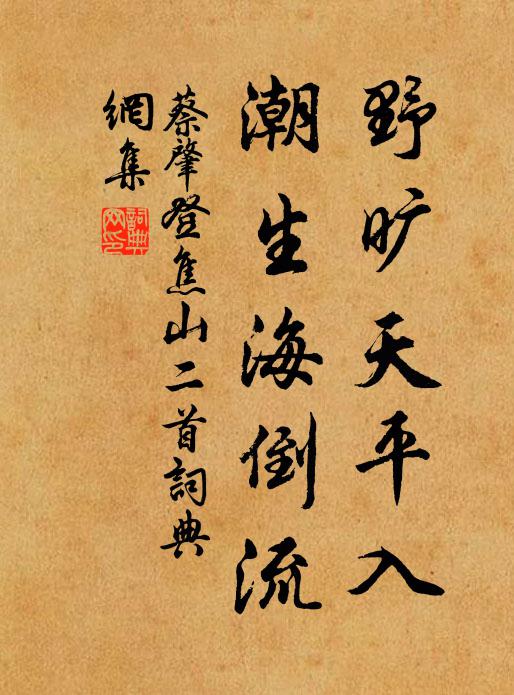 野旷天平入
潮生海倒流
蔡肇登焦山二首詞典
網集
詞典
网印